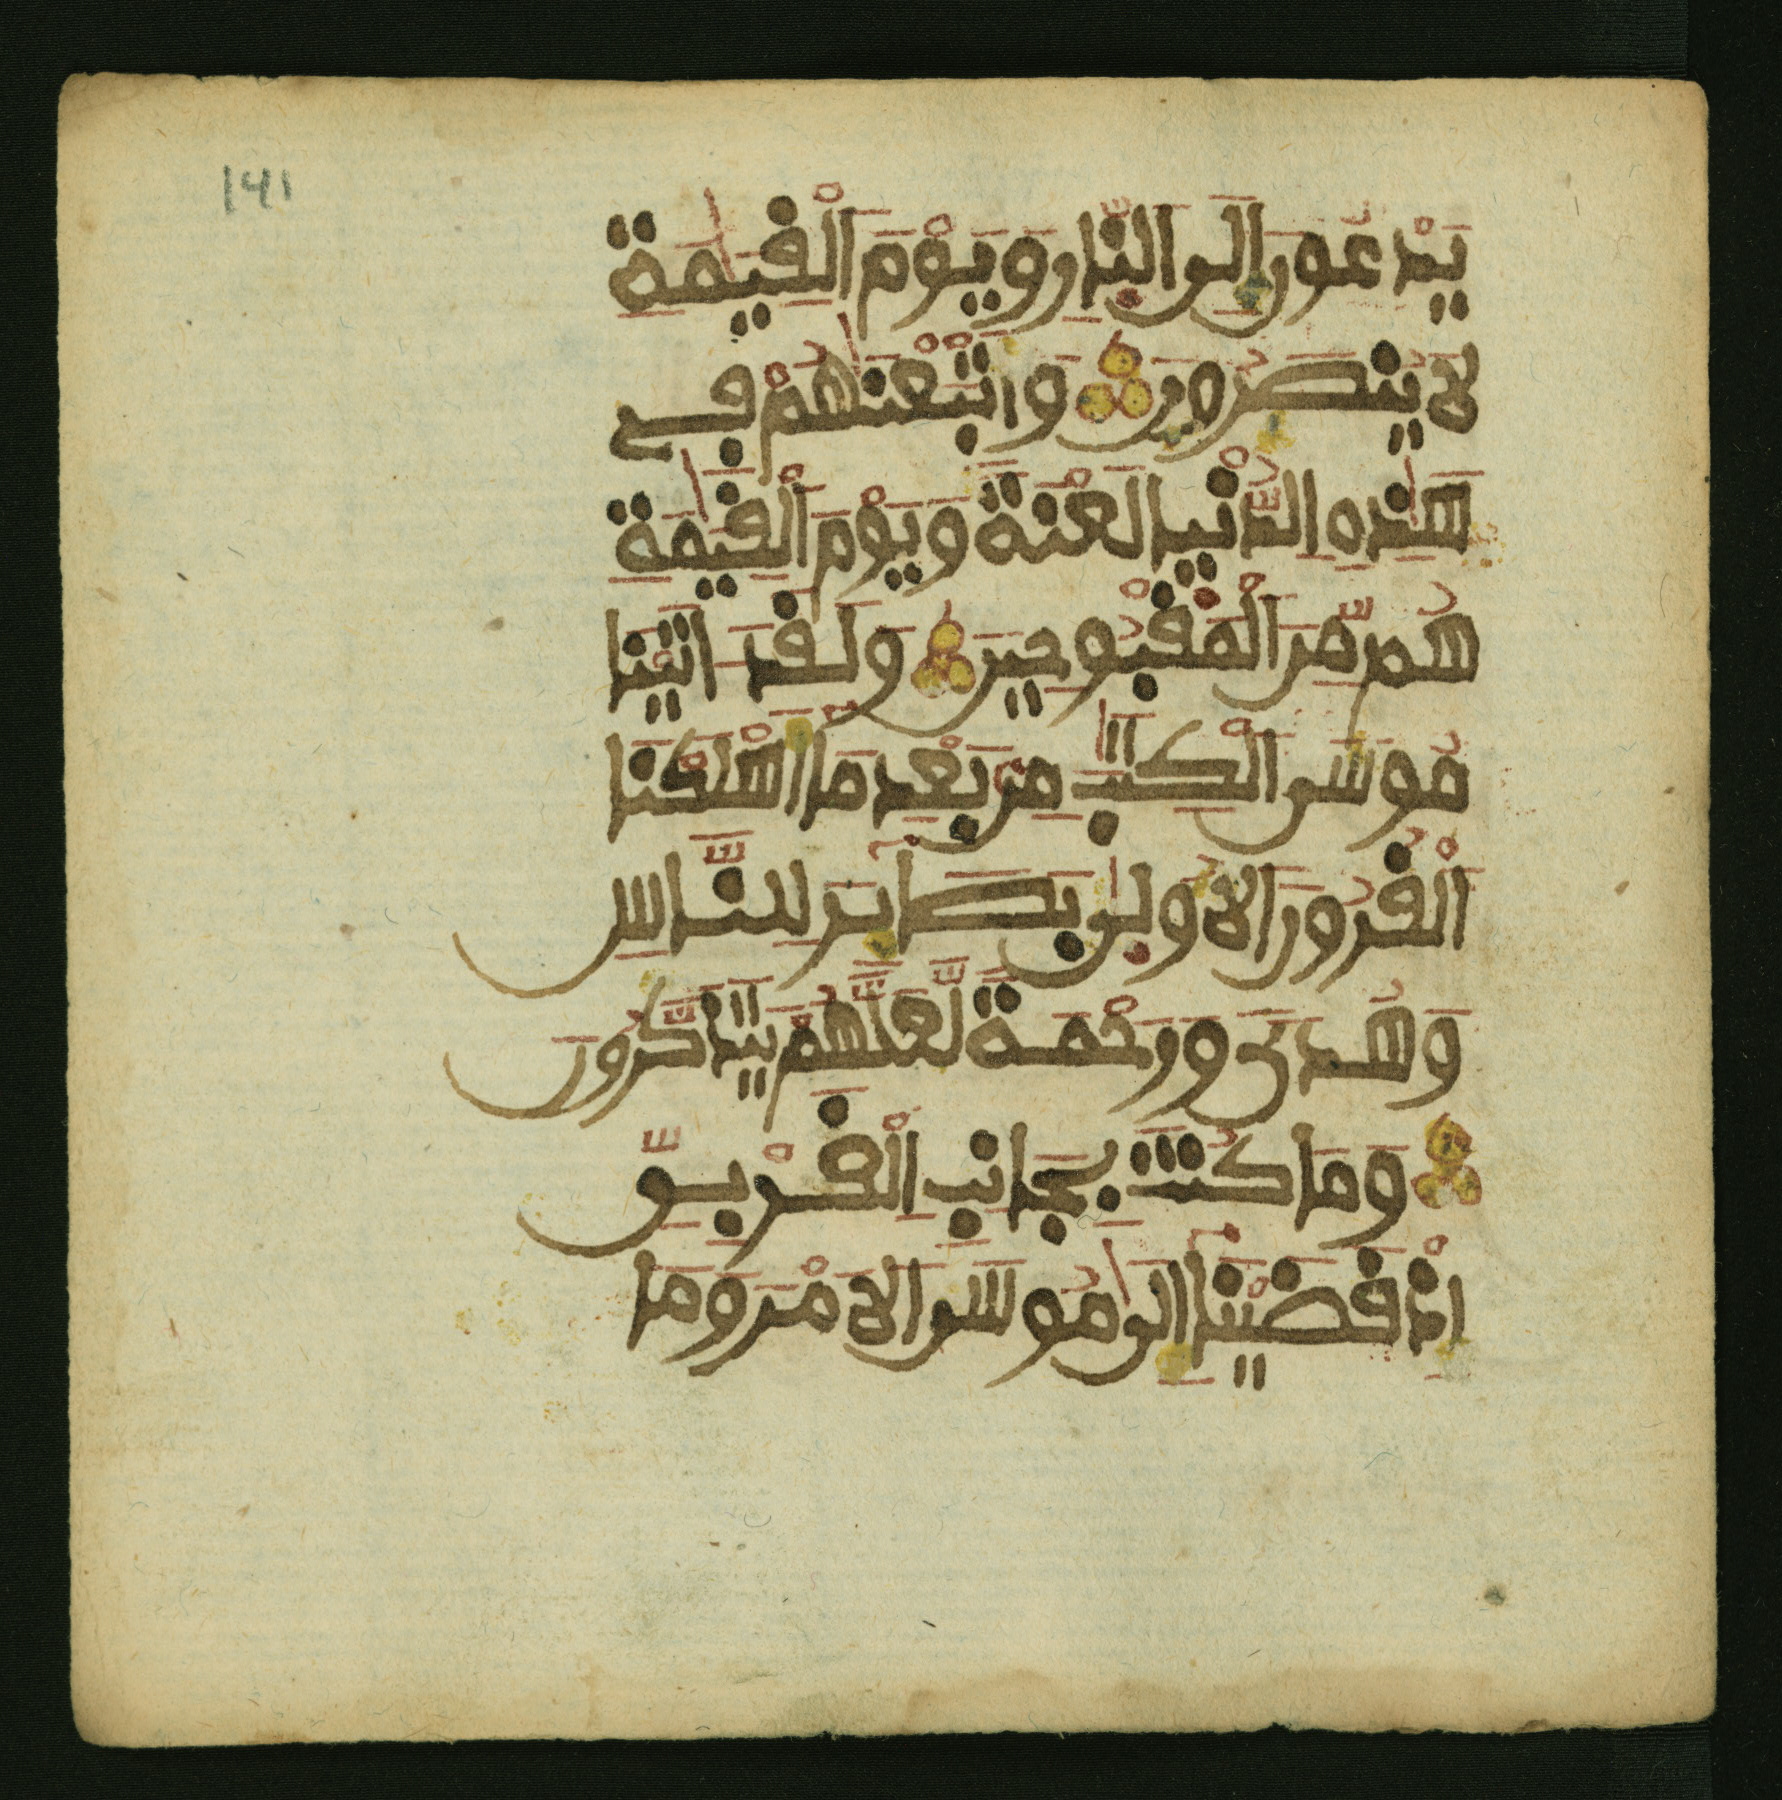 141
يَدْعُونَ إِلَى النّ۪ارِ وَيَوْمَ اَ۬لْقِيَٰمَةِ
لَا يُنصَرُونَ وَأَتْبَعْنَٰهُمْ فِے
هَٰذِهِ اِ۬لدُّنْي۪ا لَعْنَةً وَيَوْمَ اَ۬لْقِيَٰمَةِ
هُم مِّنَ اَ۬لْمَقْبُوحِينَ وَلَقَدَ اٰتَيْنَا
مُوسَى اَ۬لْكِتَٰبَ مِنۢ بَعْدِ مَا أَهْلَكْنَا
اَ۬لْقُرُونَ اَ۬لُاولَىٰ بَصَآئِرَ لِلنَّاسِ
وَهُدىً وَرَحْمَةً لَّعَلَّهُمْ يَتَذَكَّرُونَ
وَمَا كُنتَ بِجَانِبِ اِ۬لْغَرْبِيِّ
إِذْ قَضَيْنَا إِلَىٰ مُوسَى اَ۬لَامْرَ وَمَا